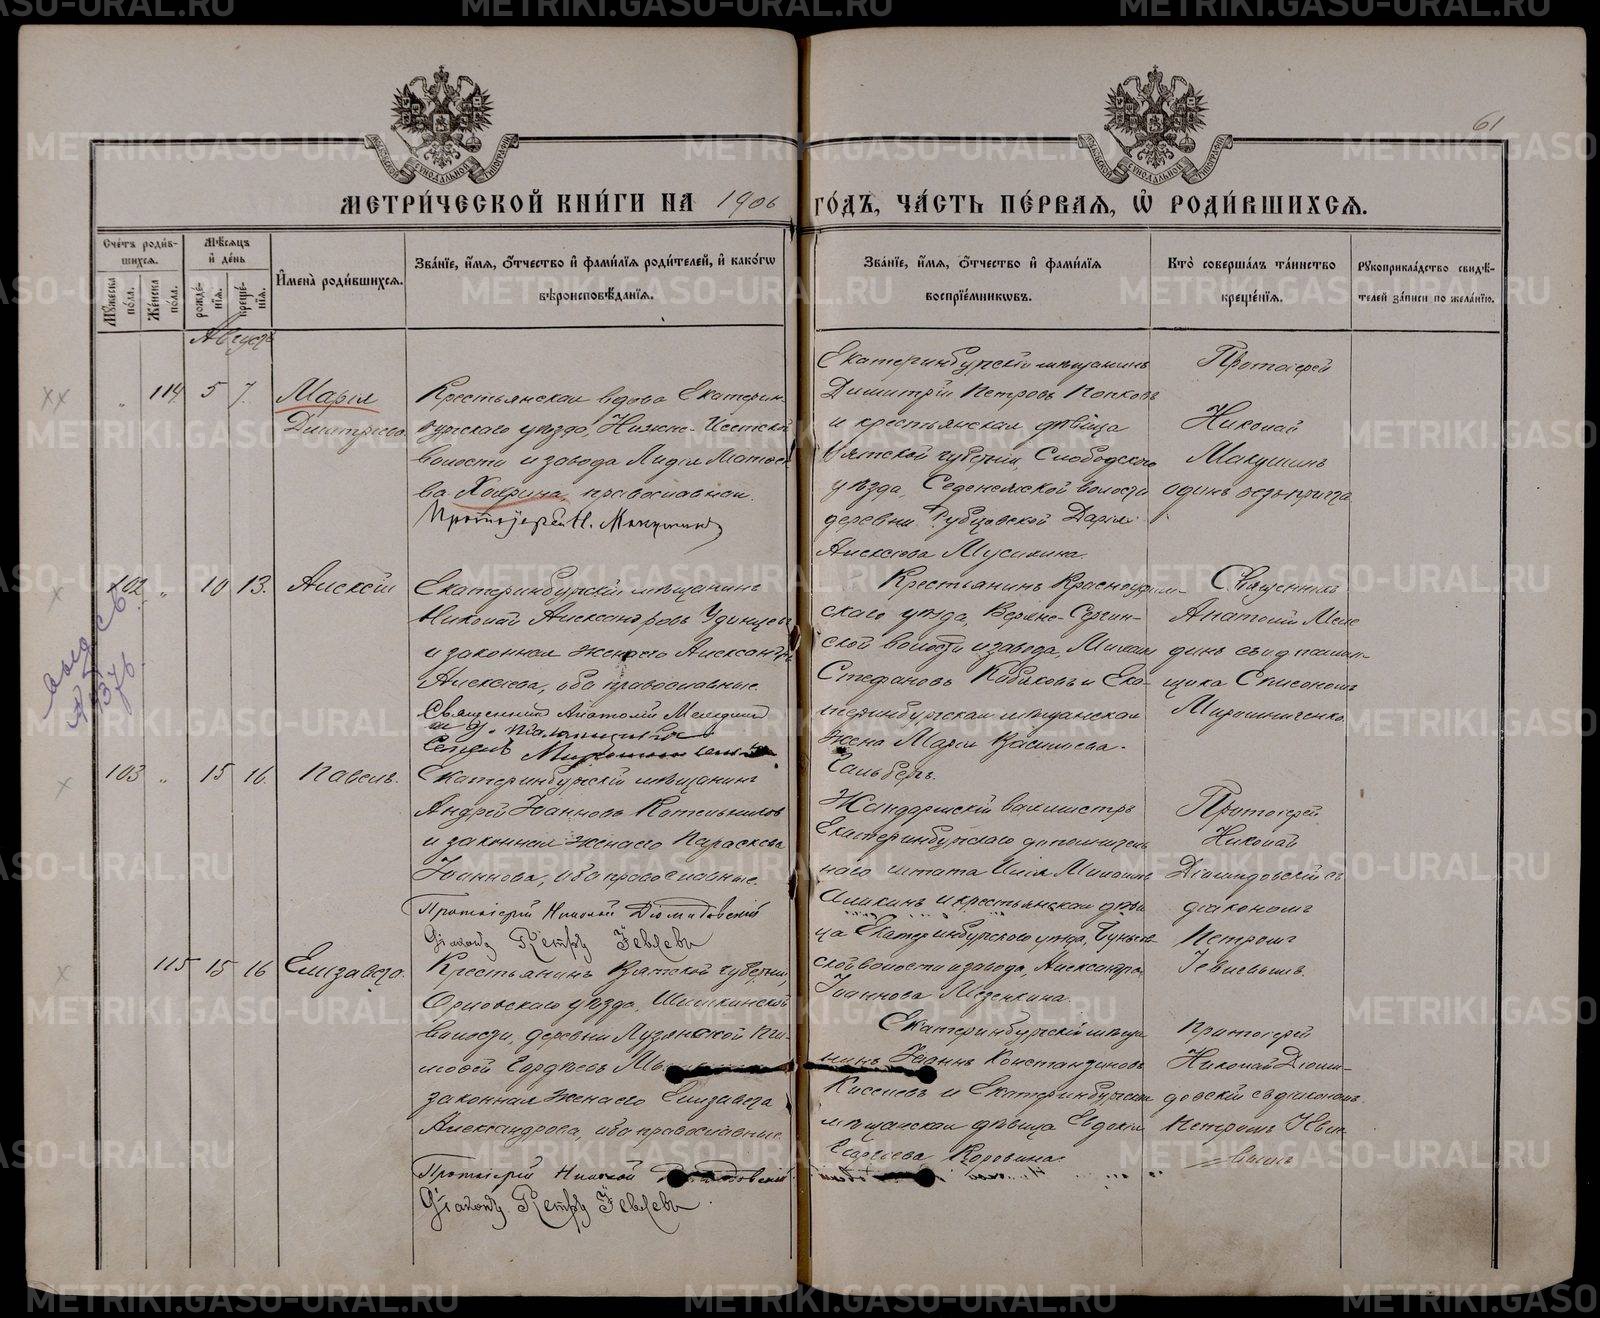 61
МЕТРИ́ЧЕСКОЙ КНИ́ГИ НА 1906 ГО́ДЪ, ЧА́СТЬ ПЕ́РВАЯ, Ѡ҆ РОДИ́ВШИХСЯ.
Сче́тъ роди́в-
шихся.
Мꙋ́жеска по́ла.
Же́нска по́ла.
Мѣ́сяцъ и҆ де́нь
рожде́-
нїя.
креще́-
нїя.
И҆мена̀ роди́вшихся.
Зва́нїе, и҆́мя, ѻ҆́тчество и҆ фами́лїя роди́телей, и҆ како́гѡ
вѣроисповѣ́данїя.
Зва́нїе, и҆́мя, ѻ҆́тчество и҆ фами́лїя
воспрїе́мниковъ.
Кто̀ соверша́лъ та́инство
креще́нїя.
Рꙋкоприкла́дство свидѣ́-
телей за́писи по жела́нїю.
Августъ
114 5 7. Марія
Димитріева
Крестьянская вдова Екатерин-
бургскаго уѣзда, Нижне-Исетской
волости и завода Лидія Матвѣе-
ва Хокрина, православная.
Протоіерей Н. Макушинъ
Екатеринбургскій мѣщанинъ
Димитрій Петровъ Попковъ
и крестьянская дѣвица
Вятской губерніи, Слободского
уѣзда, волости
деревни Рубцовской Дарія
Алексѣева Мусихина.
Протоіерей
Николай
Макушинъ
одинъ безъ причта
102 " 10 13. Алексѣй
Екатеринбургскій мѣщанинъ
Николай Александровъ Удинцевъ
и законная жена его Александра
Алексѣева, оба православные.
Священникъ Анатолій
Крестьянинъ Красноуфим-
скаго уѣзда, Верхне-Сергин-
ской волости и завода, Михаил
Стефановъ Кабаковъ и Ека-
теринбургская мѣщанская
жена Марія Васильева
Священникъ
Анатолій Меле
динъ съ и д псалом-
щика
Мирошниченко
103 " 15 16. Павелъ.
Екатеринбургскій мѣщанинъ
Андрей Іоанновъ Котельниковъ
и законная жена его Параскева
Іоаннова, оба православные.
Протоіерей Николай Діомидовскій
Діаконъ Петръ Іевлевъ
Жандармскій вахмистръ
Екатеринбургскаго дополнитель
наго штата Илія Михаиловъ
Аликинъ и крестьянская дѣви
ца Екатеринбургскаго уѣзда,
ской волости и завода, Александра
Іоаннова Мезенкина.
Протоіерей
Николай
Діомидовскій съ
діакономъ
Петромъ
Іевлевымъ.
115 15 16 Елизавета.
Крестьянинъ Вятской губерніи,
Орловскаго уѣзда,
волости, деревни Лузянской Ти-
моѳей Гордѣевъ
законная жена его Елизавета
Александрова, оба православные.
Протоіерей Николай Діомидовскій
Діаконъ Петръ Іевлевъ
Екатеринбургскій мѣща
нинъ Іоаннъ Константиновъ
Киселевъ и Екатеринбургская
мѣщанская дѣвица Евдокія
Сергѣева Коровина.
Протоіерей
Николай Діоми-
довскій съ діакономъ
Петромъ Іевле-
вымъ
METRIKI.GASO-URAL.RU